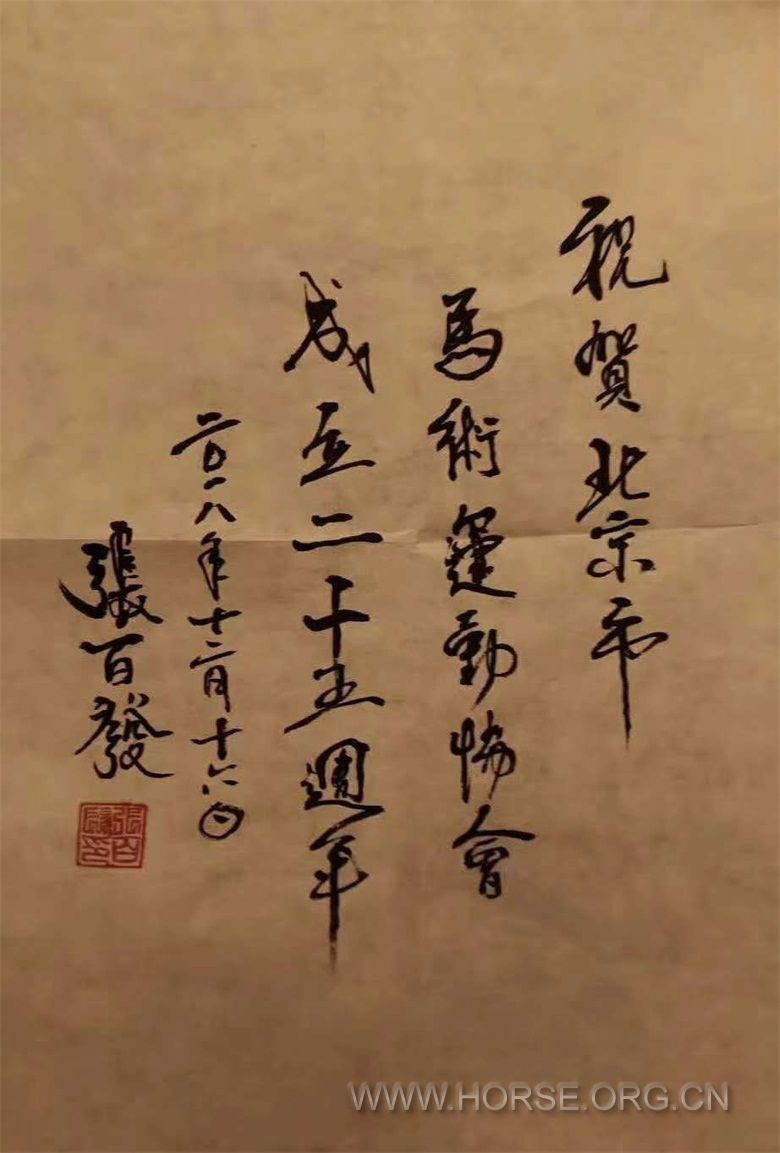 祝賀北京市
馬術運動協會
成立二十五週年
二〇一八年十二月十六日
張百發
張百發印
WWW.HORSE.ORG.CN